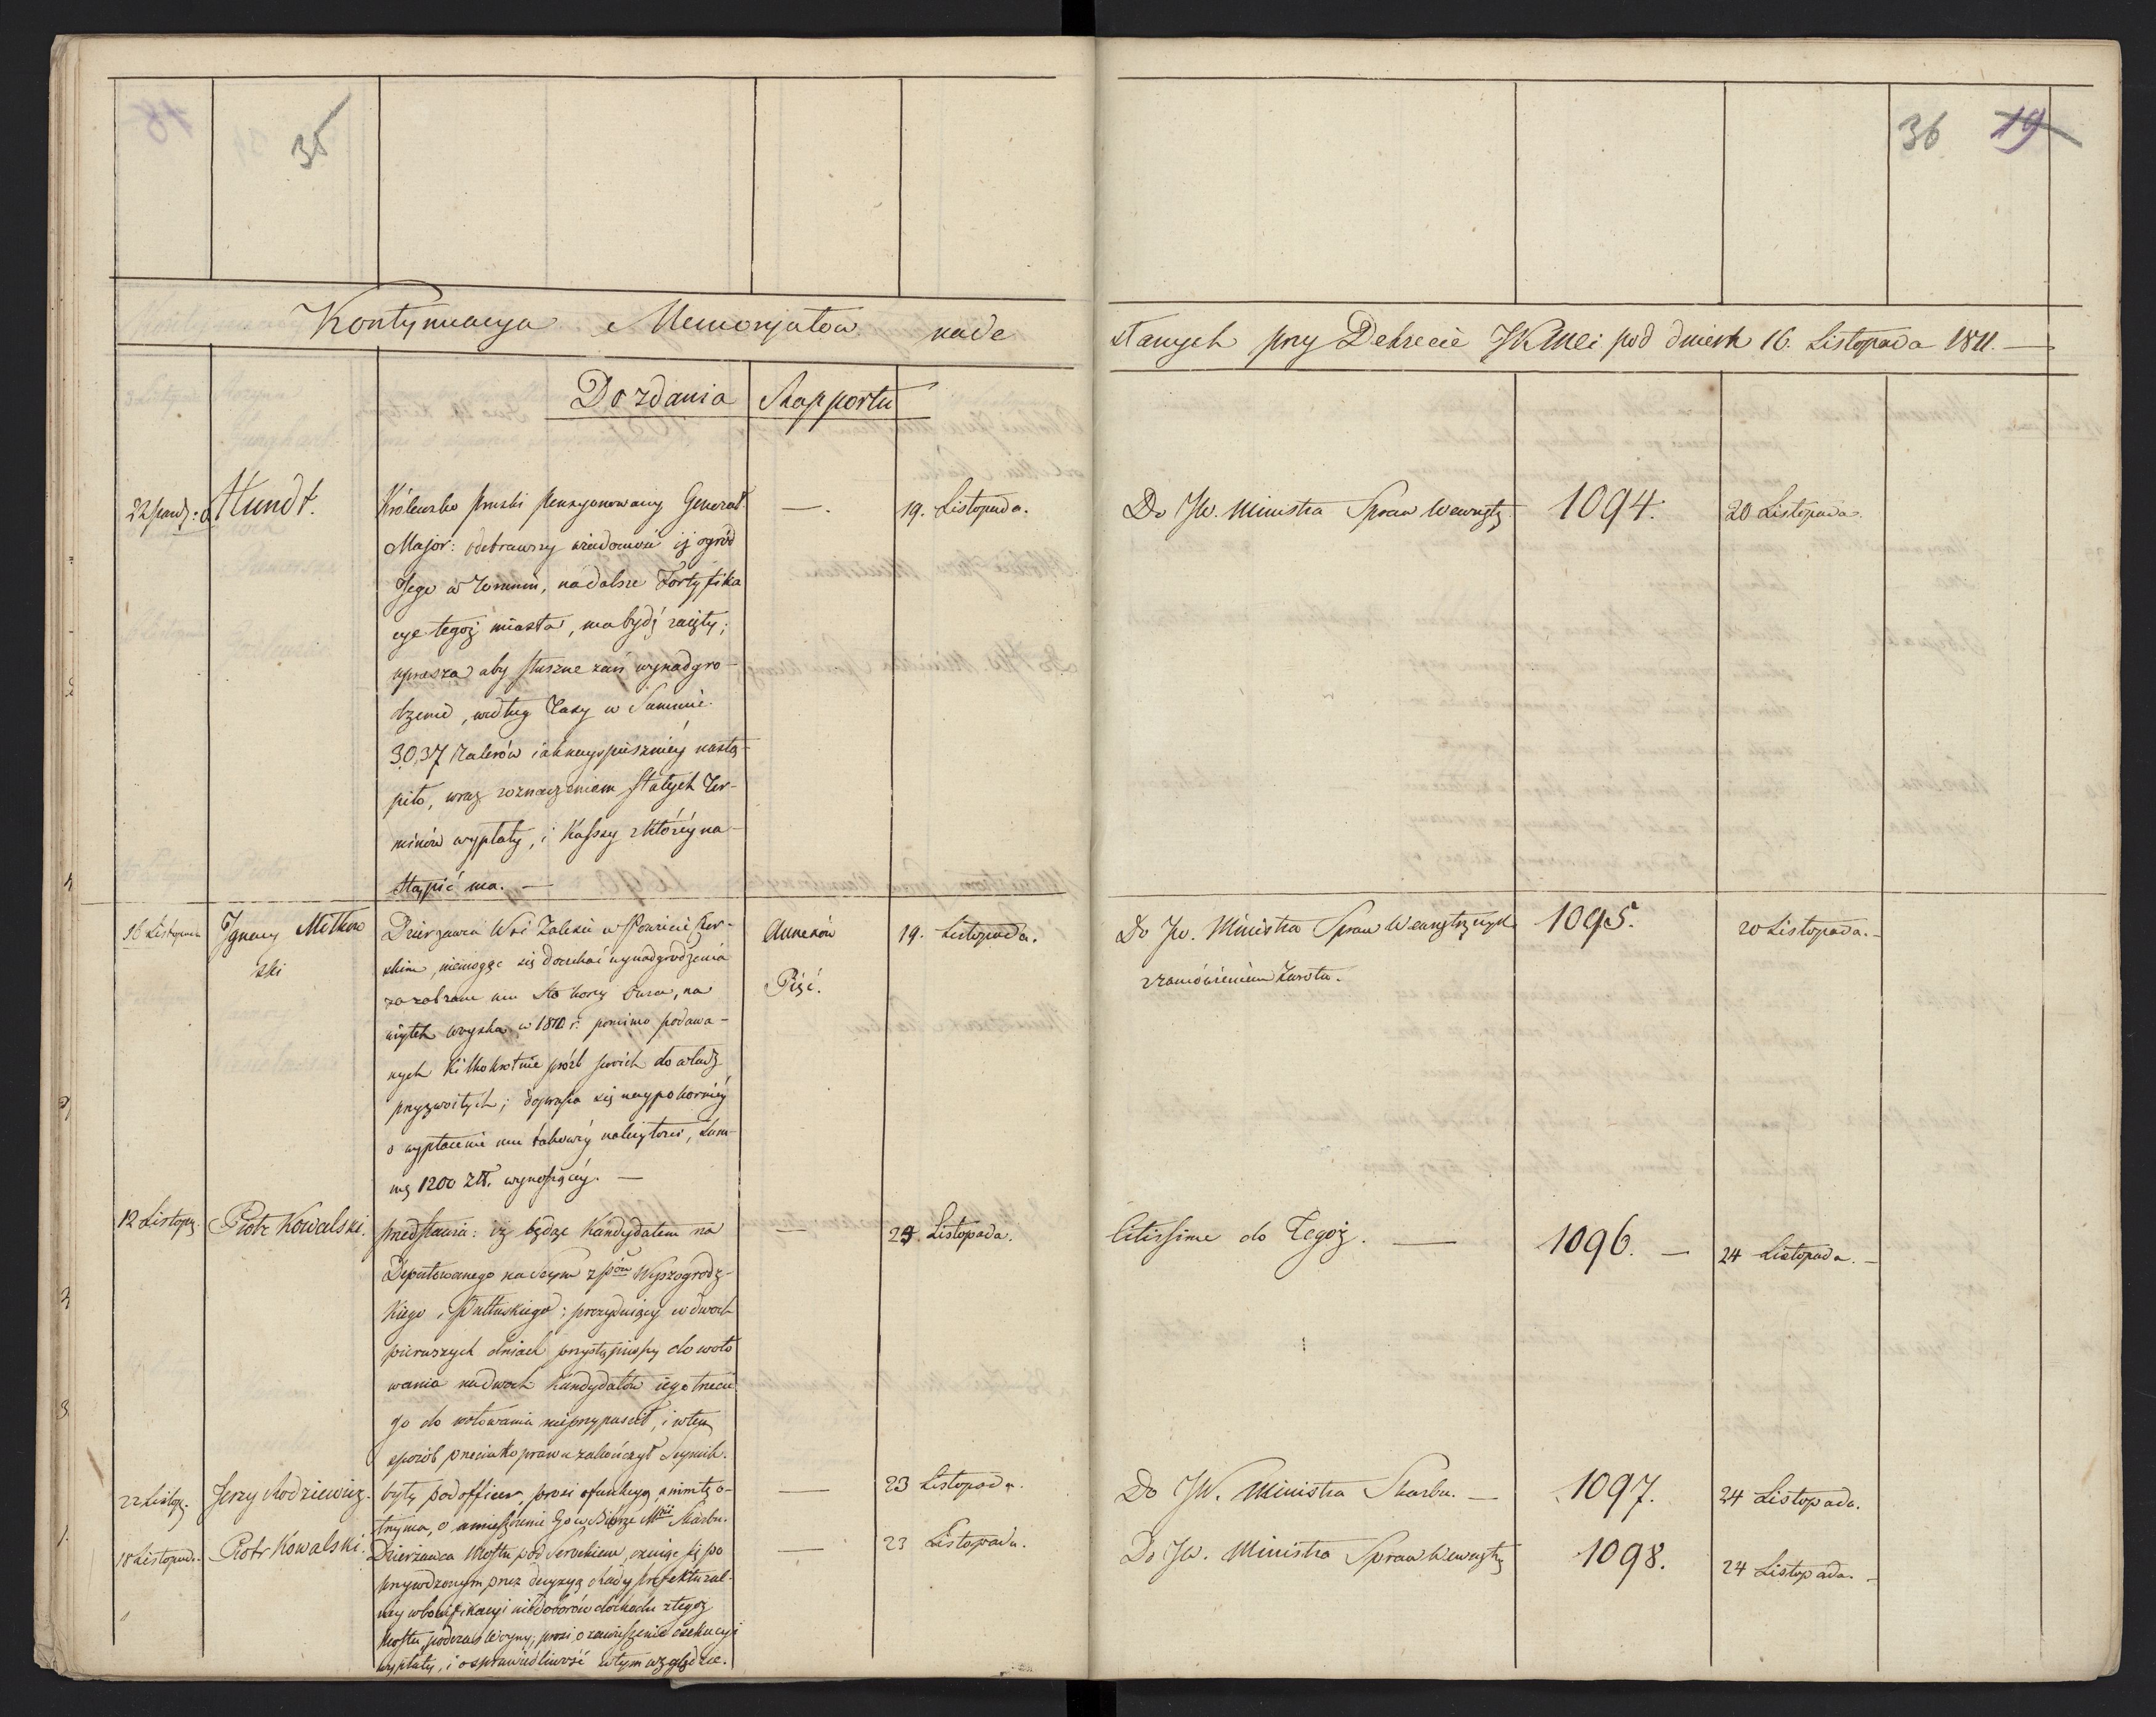 35
36 19
Kontynuacya Memoryałow nade
słanych przy Dekrecie JKMci pod dniem 16. Listopada 1811. —
Do zdania Rapportu
22 paźdz: Hundt.
Królewsko Pruski Pensyonowany Generał
Major: odebrawszy wiadomość iż ogród
Jego w Toruniu, na dalsze Fortyfika
cye tegoż miasta, ma bydź zaięty;
uprasza aby słuszne zań wynadgro-
dzenie, według Taxy w Summie
3037 Talerów iak naypieszniéy nastą-
piło, wraz z oznaczeniem stałych Ter-
minów wypłaty, i Kassy z któréy na-
stąpić ma. —
—.
19. Listopada.
Do JW. Ministra Spraw Wewnętz.
1094.
20 Listopada.
16 Listopada
Ignacy Mitkow
ski
Dzierżawca Wsi Zaleśia w Powiecie
skim, niemogąc się doczekać wynadgrodzenia
za zabrane mu Sto korcy Owsa, na
użytek woyska w 1810 r. pomimo podawa-
nych Kilkokrotnie próźb swoich do władz
przyzwoitych; doprasza się naypokorniéy
o wypłacenie mu takowéy należytości, Sum-
mę 1200 Złł. wynoszącéy. —
Annexów
Pięć.
19. Listopada.
Do JW. Ministra Spraw Wewnętrznych
z zamówieniem zwrotu.
1095.
20 Listopada. -
12 Listopa.
Piotr Kowalski.
przedstawia: iż będąc Kandydatem na
Deputowanego na Seym z Ptów Wyszogrodz-
kiego i Pułtuskiego; prezyduiący w dwoch
pierwszych dniach przystąpiwszy do woto
wania na dwoch Kandydatów iego trzecie
go do wotowania nieprzypuścił, i w ten
sposób przeciwko prawu zakończył Seymik.
—
24. Listopada.
Citissime do Tegoż. —
1096. —
24 Listopada. -
22 Listop.
Jerzy Rodziewicz.
były podofficer, prosi o funkcyą, a nim tę o-
trzyma, o umieszczenie Go w Biórze Mtra Skarbu.
—
23 Listopada.
Do JW. Ministra Skarbu. —
1097.
24 Listopada.
18 Listopad.
Piotr Kowalski.
Dzierżawca Mostu pod Serockiem, czuiąc się po
krzywdzonym przez decyzyą Rady Prefektural-
ney w bonifikacyi niedoborów dochodu z tegoż
Mostu, podczas Woyny; prosi o zawieszenie exekucyi
wypłaty, i o sprawiedliwość w tym względzie.
—
23 Listopada.
Do JW. Ministra Spraw Wewnętz.
1098.
24 Listopada. -